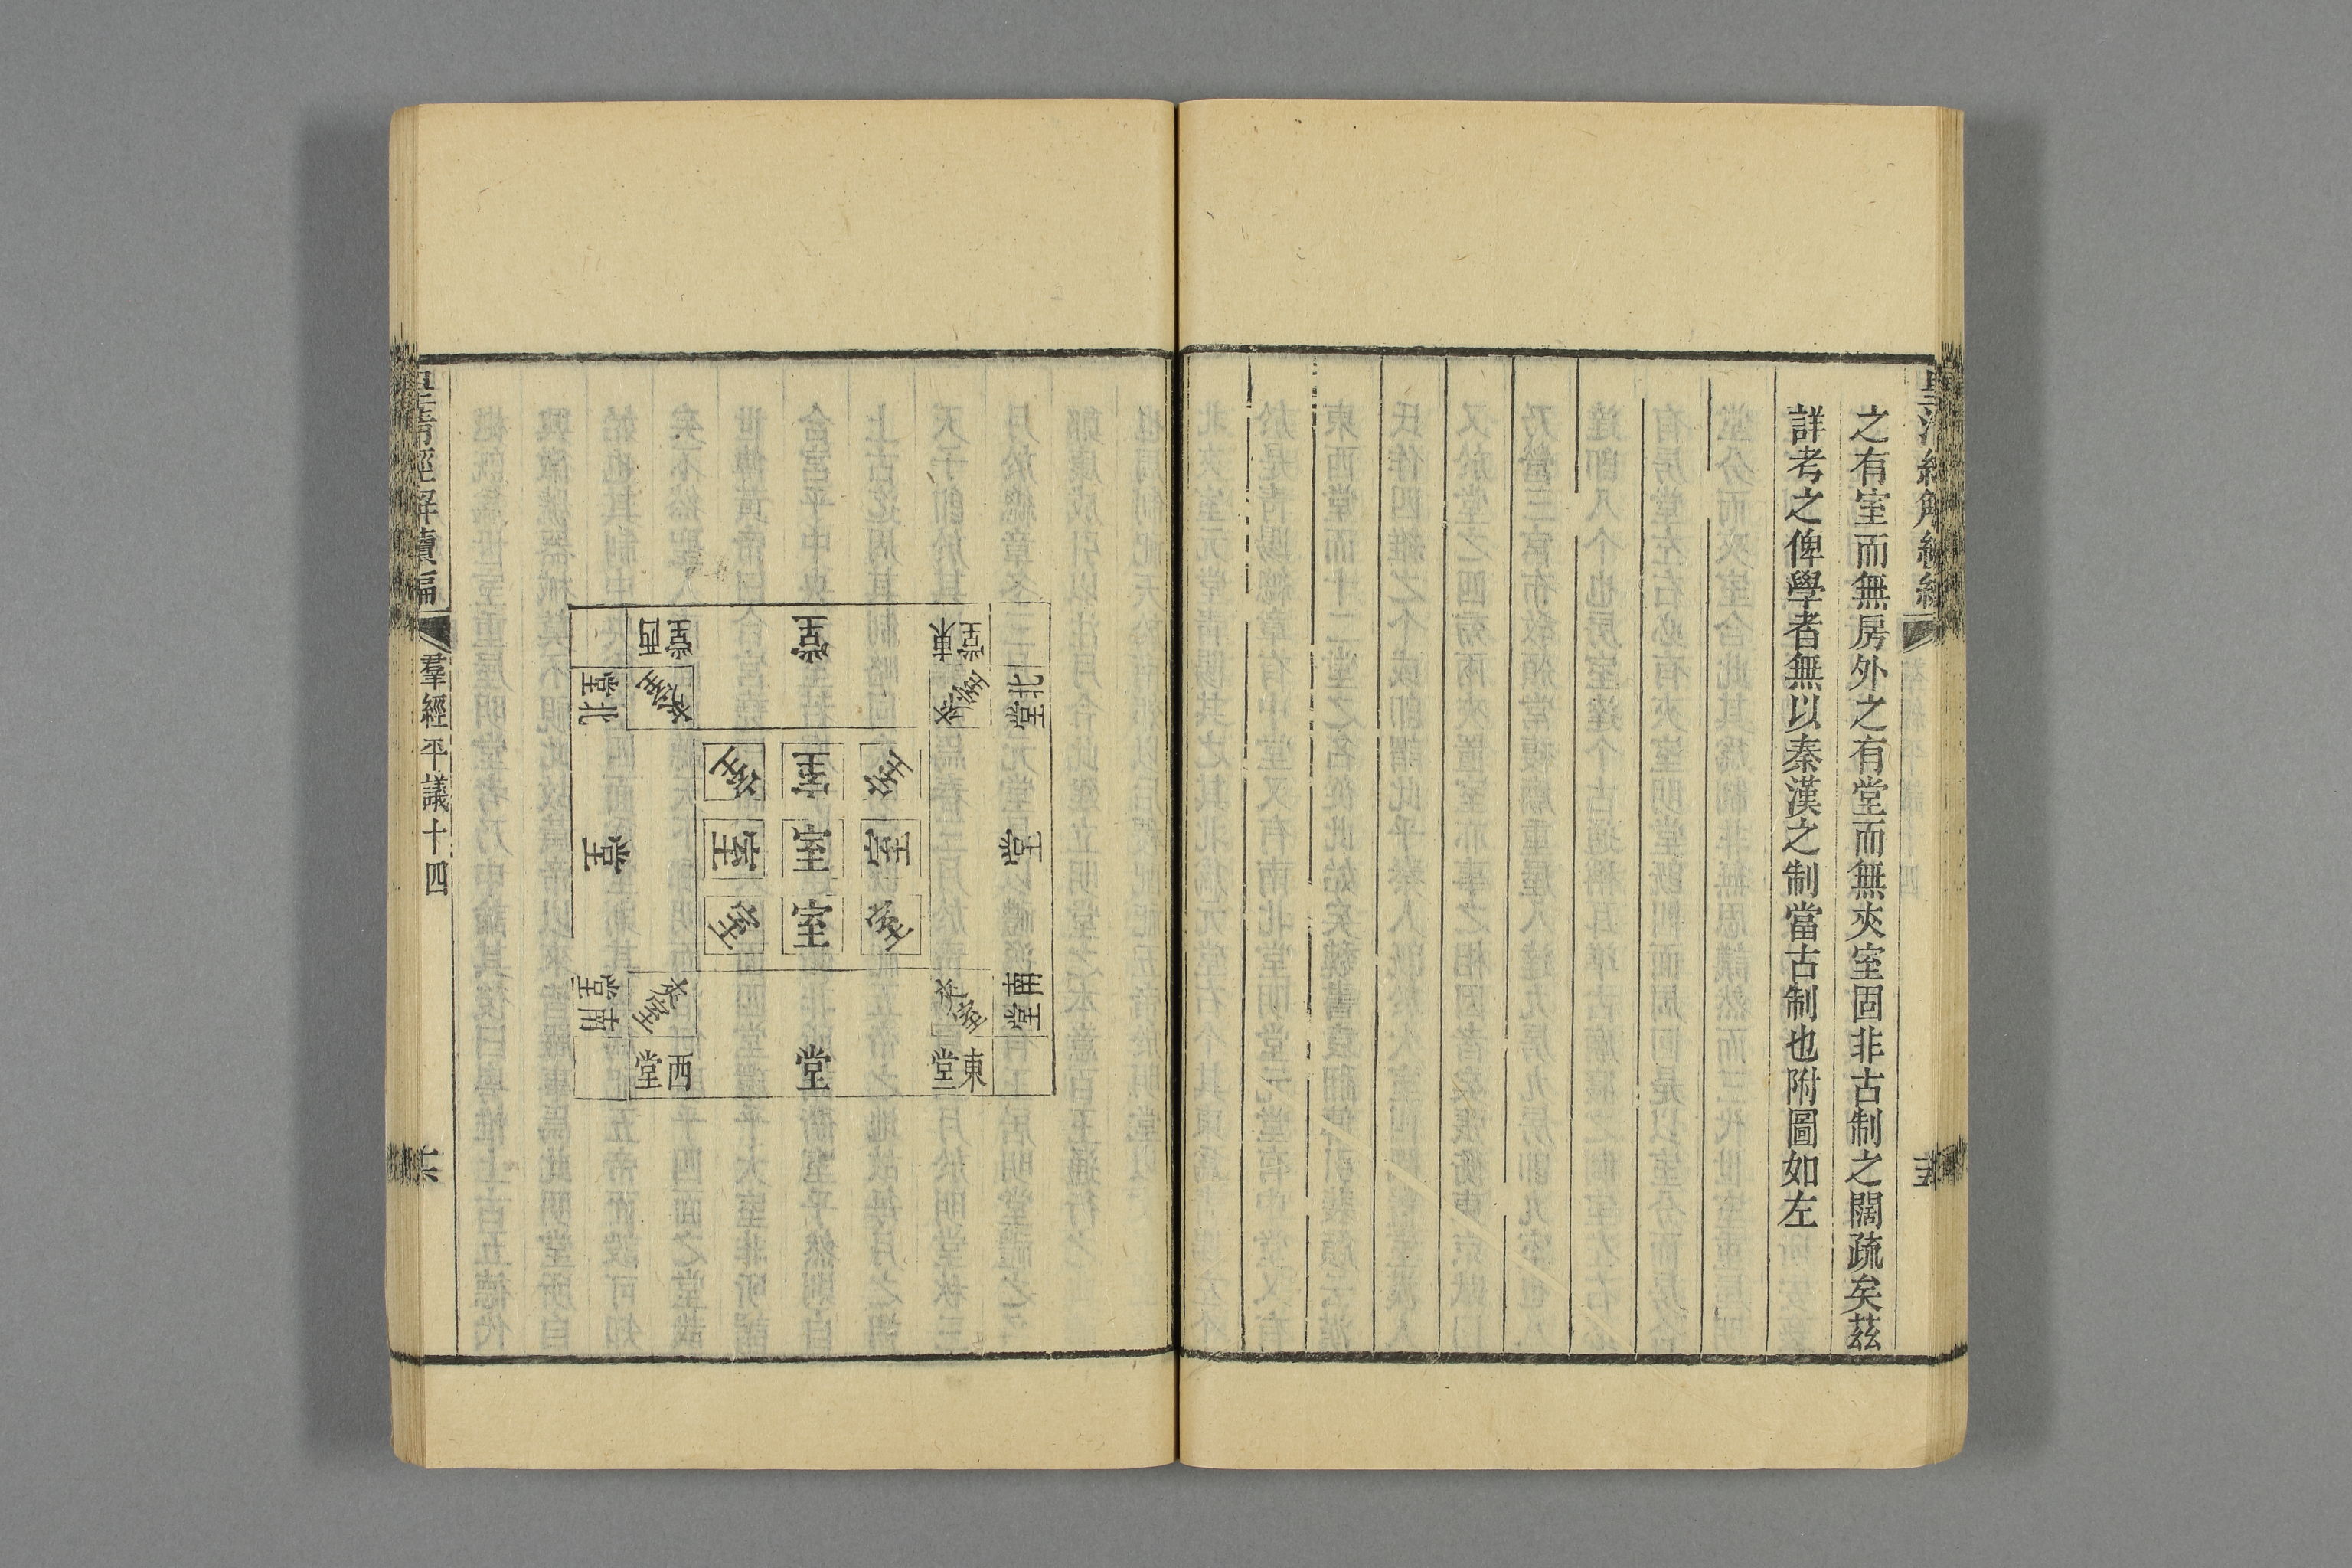 之有室而無房外之有堂而無夾室固非古制之闊疏矣茲
詳考之俾學者無以秦漢之制當古制也附圖如左
北堂
堂
南堂
東堂
夾室
夾室
東堂
室
室
室
堂
室
室
室
堂
室
室
室
西堂
夾室
夾室
西堂
北堂
堂
南堂
皇清經解續編
羣經平議十四